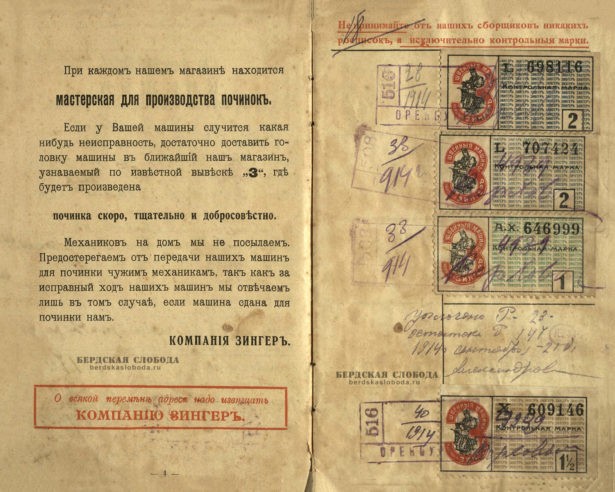 При каждомъ нашемъ магазинѣ находится
мастерская для производства починокъ.
Если у Вашей машины случится какая
нибудь неисправность, достаточно доставить го-
ловку машины въ ближайшій нашъ магазинъ,
узнаваемый по извѣстной вывѣскѣ „З“, гдѣ
будетъ произведена
починка скоро, тщательно и добросовѣстно.
Механиковъ на домъ мы не посылаемъ.
Предостерегаемъ отъ передачи нашихъ машинъ
для починки чужимъ механикамъ, такъ какъ за
исправный ходъ нашихъ машинъ мы отвѣчаемъ
лишь въ томъ случаѣ, если машина сдана для
починки намъ.
КОМПАНІЯ ЗИНГЕРЪ.
БЕРДСКАЯ СЛОБОДА
berdskasloboda.ru
О всякой перемѣнѣ адреса надо извѣщать
КОМПАНІЮ ЗИНГЕРЪ.
— 4 —
Не принимайте отъ нашихъ сборщиковъ никакихъ
росписокъ, а исключительно контрольныя марки.
516
28
1914
ОРЕНБУ
L 698116
КОНТРОЛЬНАЯ МАРКА
2
38
914
L 707424
КОНТРОЛЬНАЯ МАРКА
2
38
914
А.Х. 646999
КОНТРОЛЬНАЯ МАРКА
1
28-
1914
БЕРДСКАЯ СЛОБОДА
berdskasloboda.ru
516
40
1914
ОРЕНБУ
609146
КОНТРОЛЬНАЯ МАРКА
1½